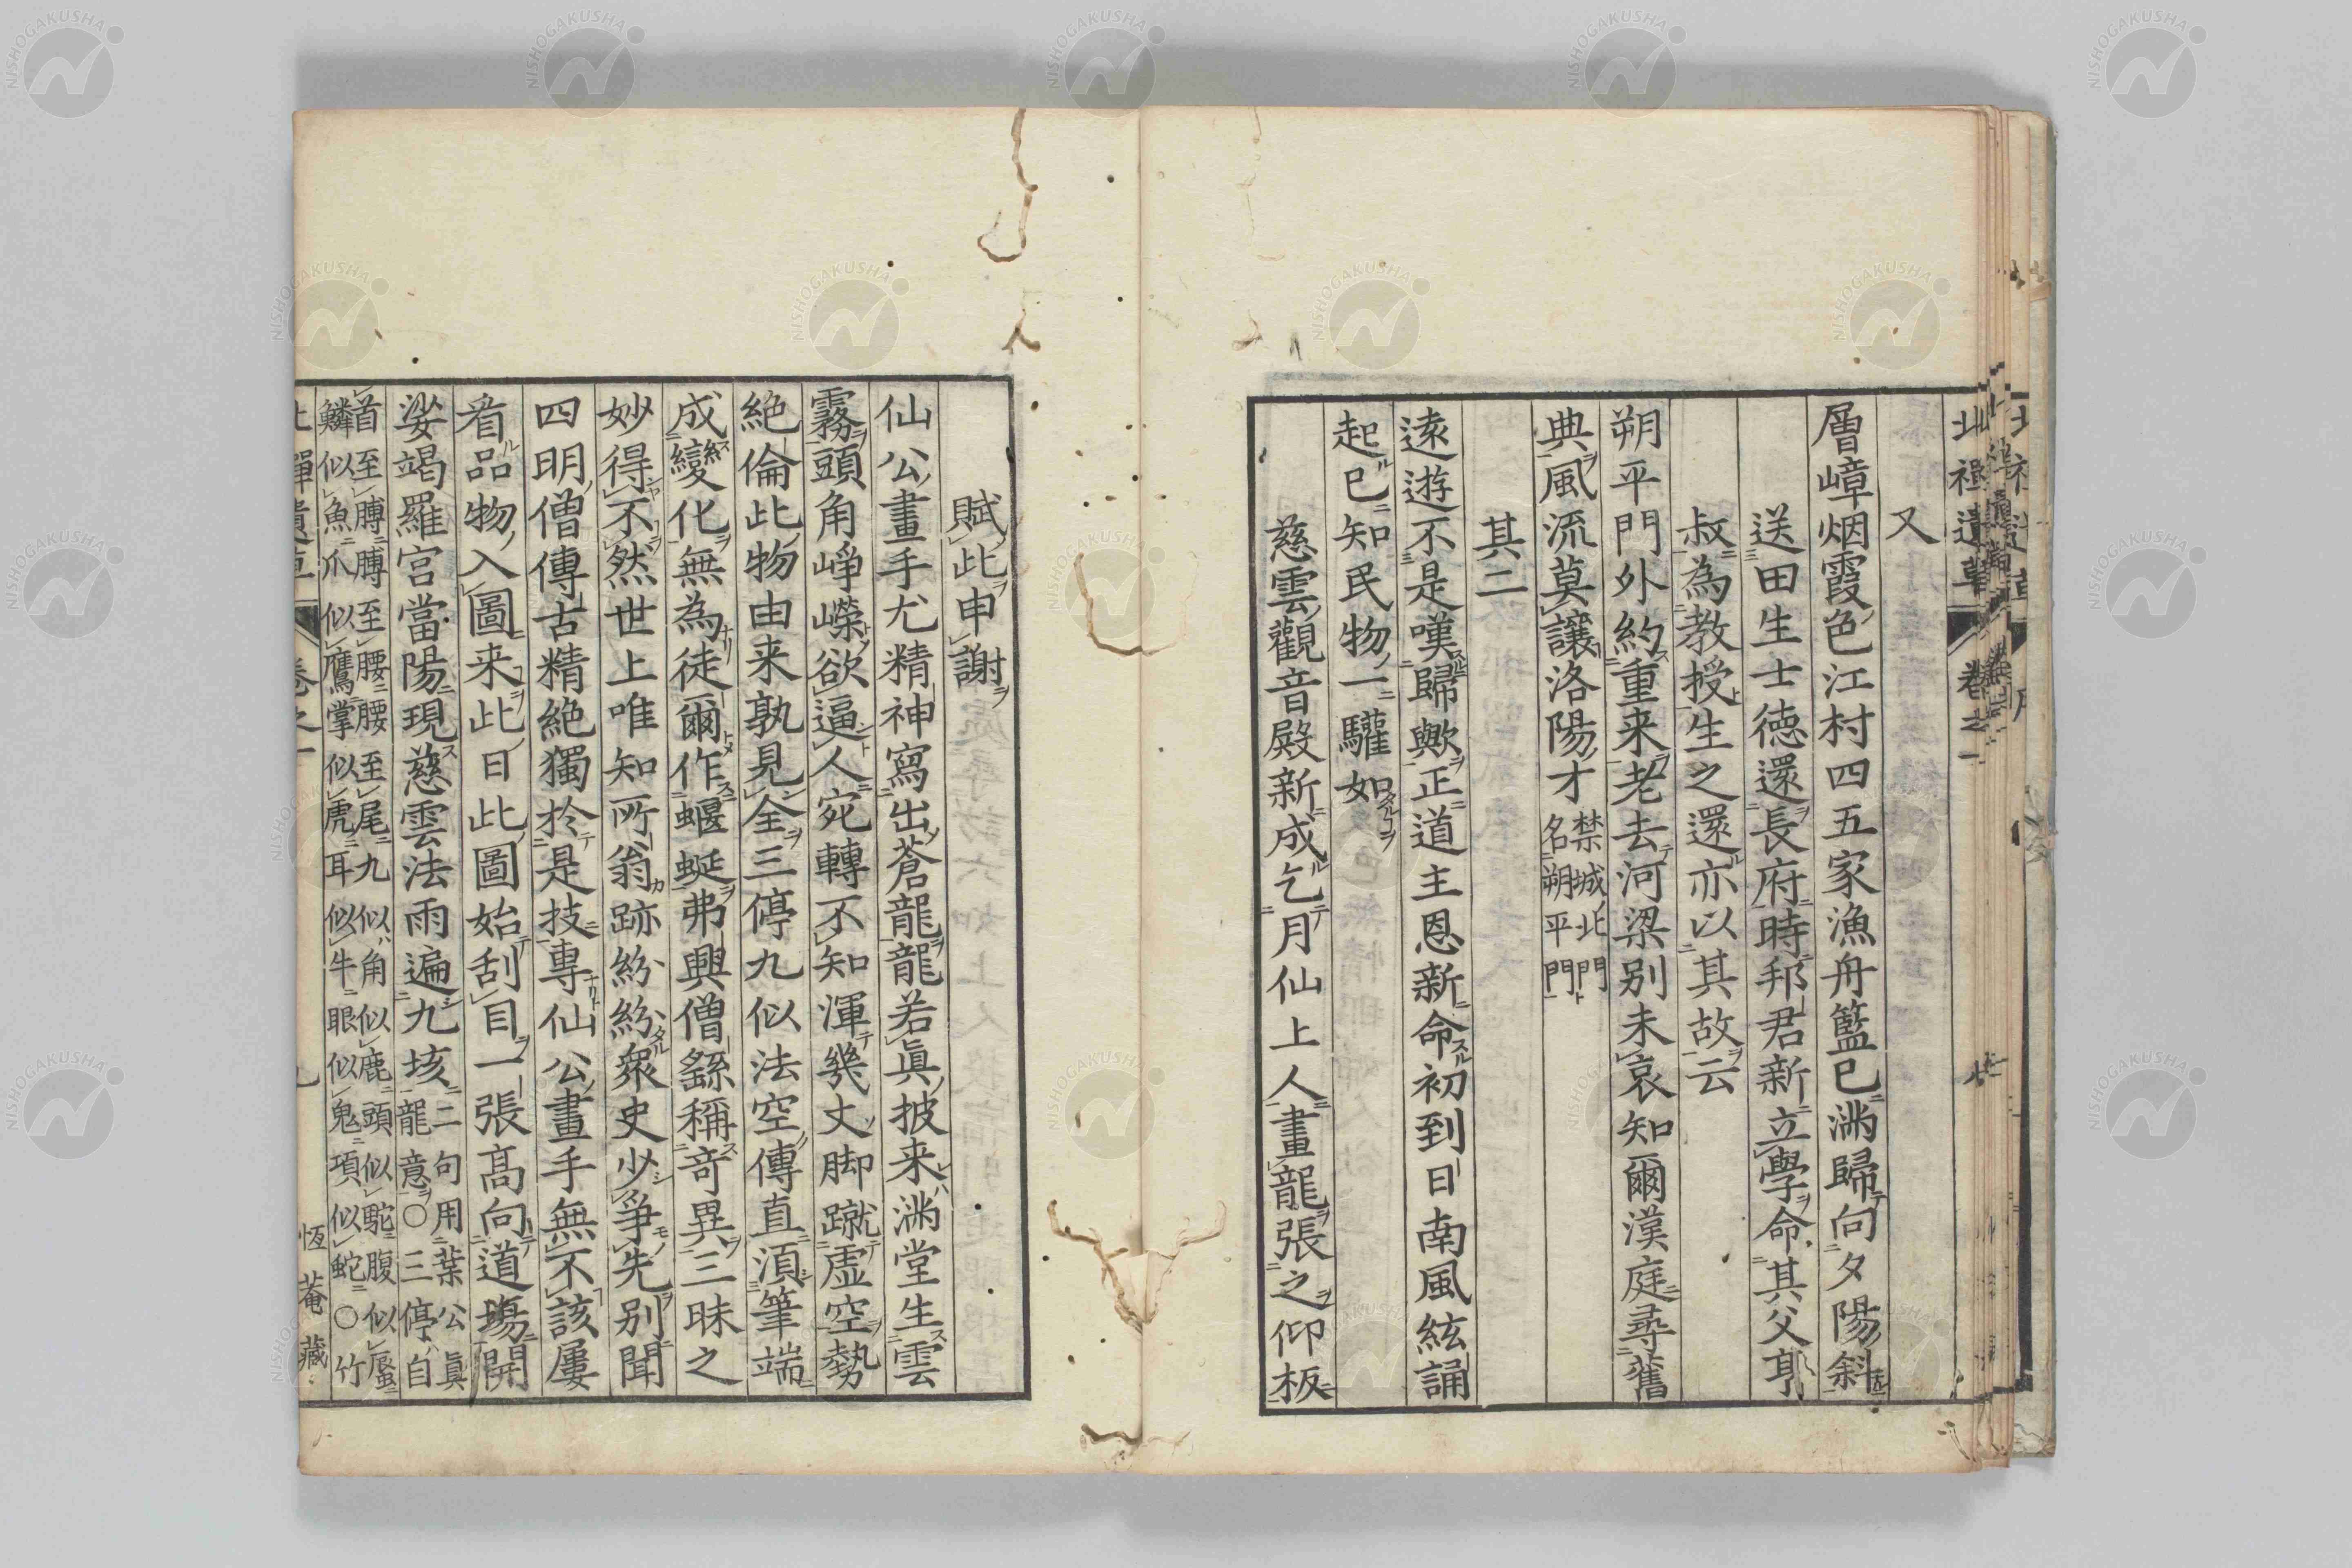 北禪遺草 卷之一
又
層嶂烟霞色江村四五家漁舟籃已満歸向夕陽斜
送田生士徳還長府時邦君新立學命其父亨
叔為教授生之還亦以其故云
朔平門外約重来老去河梁别未哀知爾漢庭尋舊
典風流莫讓洛陽才 禁城北門名朔平門
其二
遠遊不是嘆歸歟正道主恩新命初到日南風絃誦
起已知民物一驩如
慈雲觀音殿新成乞月仙上人畫龍張之仰板
賦此申謝
仙公畫手尤精神寫出蒼龍龍若眞披来満堂生雲
霧頭角崢嶸欲逼人宛轉不知渾幾丈脚蹴虚空勢
絶倫此物由来孰見全三停九似法空傳直須筆端
成變化無為徒爾作蝘蜒弗興僧繇稱竒異三昧之
妙得不然世上唯知所翁跡紛紛衆史少爭先别聞
四明僧傳古精絶獨於是技專仙公畫手無不該屢
看品物入圖来此日此圖始刮目一張髙向道塲開
娑竭羅宮當陽現慈雲法雨遍九垓 二句用葉公眞龍意○三停自
首至膊膊至腰腰至尾九似角似鹿頭似駝腹似蜃
鱗似魚爪似鷹掌似虎耳似牛眼似鬼項似蛇○竹
北禪遺草 卷之一 九 恆菴藏